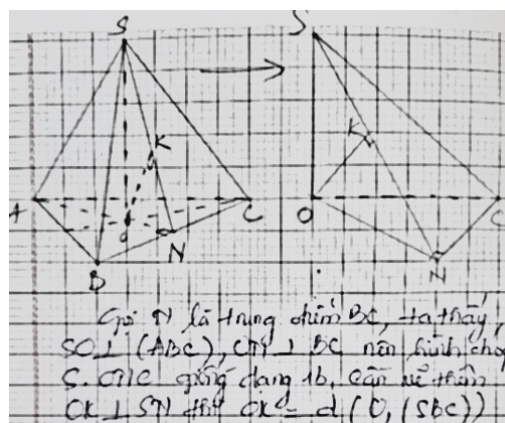 S
S
K
K
A
O
C
O
C
B
N
N
Gọi N là trung điểm BC, ta thấy,
SO⊥(ABC), ON ⊥ BC nên hình chóp
S.ONC giống dạng 1b, cần vẽ thêm
OK⊥SN thì OK = d(O,(SBC))